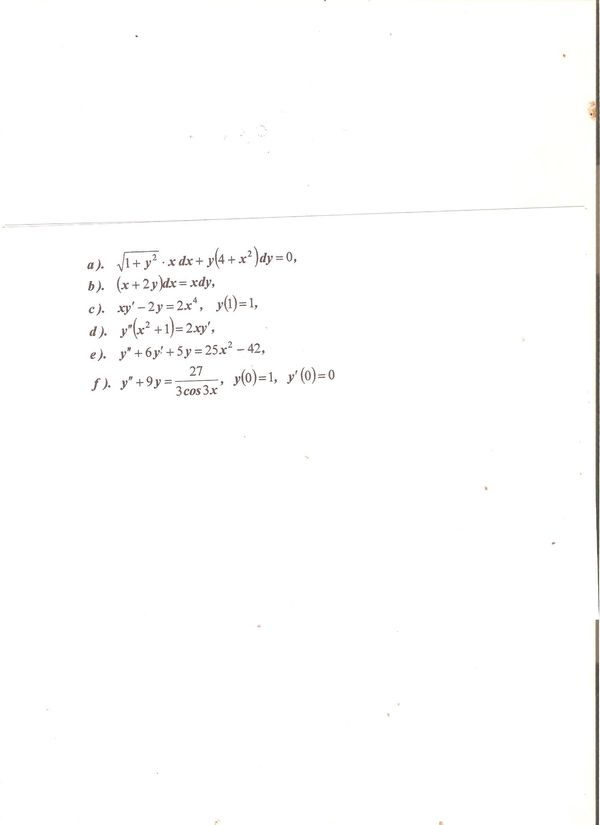 a). √1+y² · x dx + y(4+x²)dy=0,
b). (x+2y)dx=xdy,
c). xy'−2y=2x⁴, y(1)=1,
d). y″(x²+1)=2xy',
e). y″+6y'+5y=25x²−42,
f). y″+9y=27/3cos3x, y(0)=1, y'(0)=0